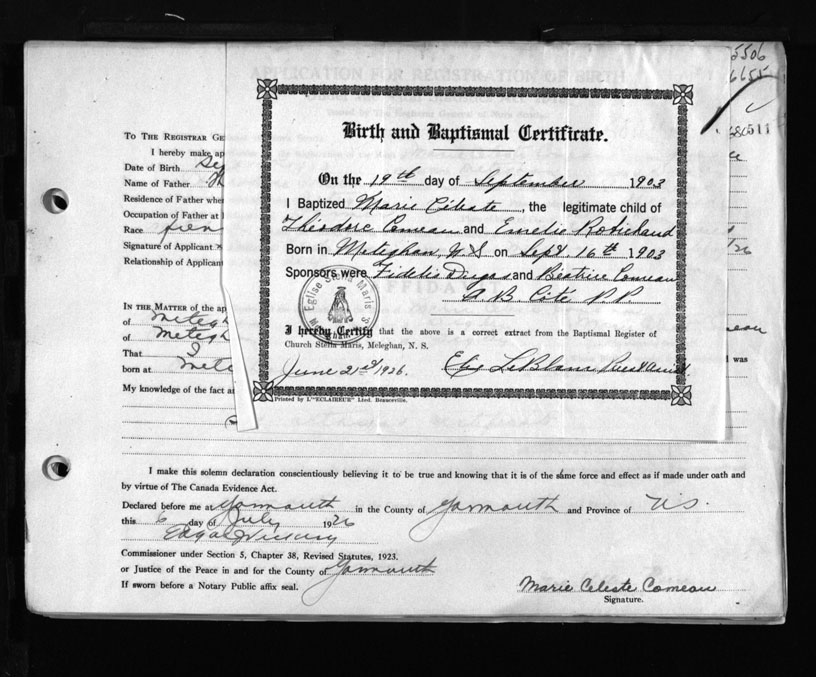 5506
6655
APPLICATION FOR REGISTRATION OF BIRTH
511
Birth and Baptismal Certificate.
On the 19th day of September 1903
I Baptized Marie Céleste, the legitimate child of
Théodore Comeau and Emelie Robichaud
Born in Meteghan, N S on Sept. 16th 1903
Sponsors were Fidelis Dugas and Béatrice Comeau
A B Côté P.P.
Eglise Stella Maris
I hereby Certify that the above is a correct extract from the Baptismal Register of
Church Stella Maris, Meleghan, N. S.
June 21st 1926. LeBlanc
Printed by L'"ECLAIREUR" Lted. Beauceville.
TO THE REGISTRAR GE
I hereby make ap
Date of Birth Se
Name of Father
Residence of Father wher
Occupation of Father at
Race
Signature of Applicant
Relationship of Applicant
26
AFFIDAVIT
IN THE MATTER of the ap
of Metegh
of Metegh
eau
That
was
born at Mete
My knowledge of the fact as
I make this solemn declaration conscientiously believing it to be true and knowing that it is of the same force and effect as if made under oath and
by virtue of The Canada Evidence Act.
Declared before me at Yarmouth in the County of Yarmouth and Province of N.S.
this 6 day of July 1926
Commissioner under Section 5, Chapter 38, Revised Statutes, 1923.
or Justice of the Peace in and for the County of Yarmouth
If sworn before a Notary Public affix seal.
Marie Celeste Comeau
Signature.